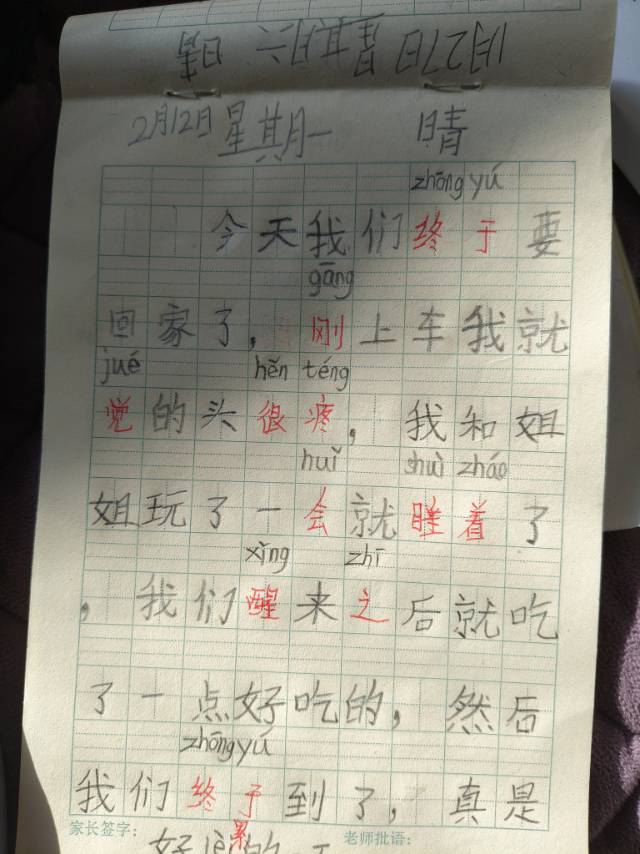 1月27日 星期六 晴
2月12日 星期一 晴
zhōng yú
今天我们终于要
gāng
回家了，刚上车我就
jué hěn téng
觉的头很疼，我和姐
huǐ shuì zháo
姐玩了一会就睡着了
xǐng zhī
，我们醒来之后就吃
了一点好吃的，然后
zhōng yú
我们终于到了，真是
家长签字： 老师批语：
好 累的